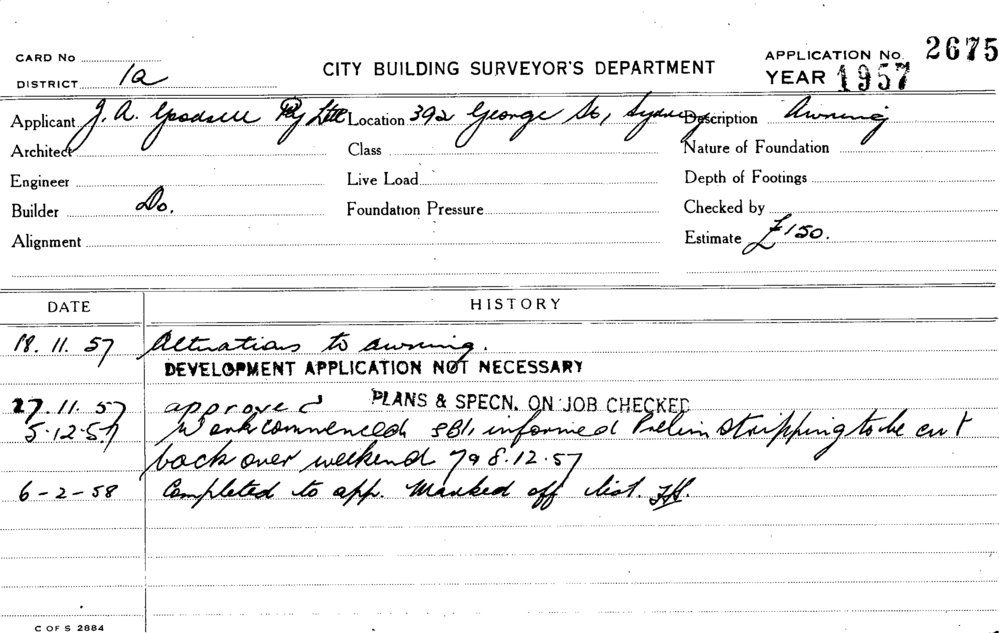 CARD No
DISTRICT 1a
CITY BUILDING SURVEYOR'S DEPARTMENT
APPLICATION No. 2675
YEAR 1957
Applicant J. A. Goodsell Pty Ltd Location 392 George St, Sydney Description Awning
Architect Class Nature of Foundation
Engineer Live Load Depth of Footings
Builder Do. Foundation Pressure Checked by
Alignment Estimate £150.
DATE HISTORY
18. 11. 57 Alterations to awning.
DEVELOPMENT APPLICATION NOT NECESSARY
27. 11. 57 approved PLANS & SPECN. ON JOB CHECKED
5. 12. 57 Work commenced informed Prelim stripping to be cut
back over weekend 7 & 8. 12. 57
6 - 2 - 58 Completed to app. Marked off list.
C OF S 2884